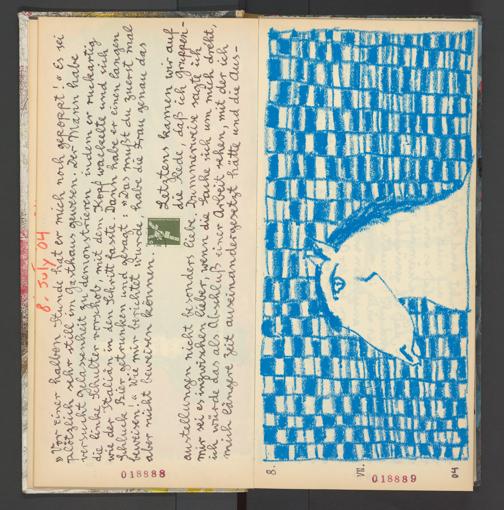 8. July 04
»Vor einer halben Stunde hat er mich noch gepoppt!« Es sei
plötzlich sehr still im Gasthaus gewesen. Der Mann habe
versucht Gelassenheit zu demonstrieren, indem er ruckartig
die linke Schulter vorschob, mit dem Kopf wackelte und sich
wie der Italiän in den Schritt faßte. Dann habe er einen langen
Schluck Bier getrunken und gesagt: »Das mußt du zuerst mal
beweisen.« Wie mir berichtet wurde, habe die Frau genau das
aber nicht beweisen können.
Letztens kamen wir auf
die Rede, daß ich Gruppen-
ausstellungen nicht besonders liebe. Dummerweise sagte ich
mir sei es inzwischen lieber, wenn die Sache sich um mich dreht,
ich würde das als Abschluß einer Arbeit sehen, mit der ich
mich längere Zeit auseinandergesetzt hätte und die Aus-
018888
8.
VII.
018889
04